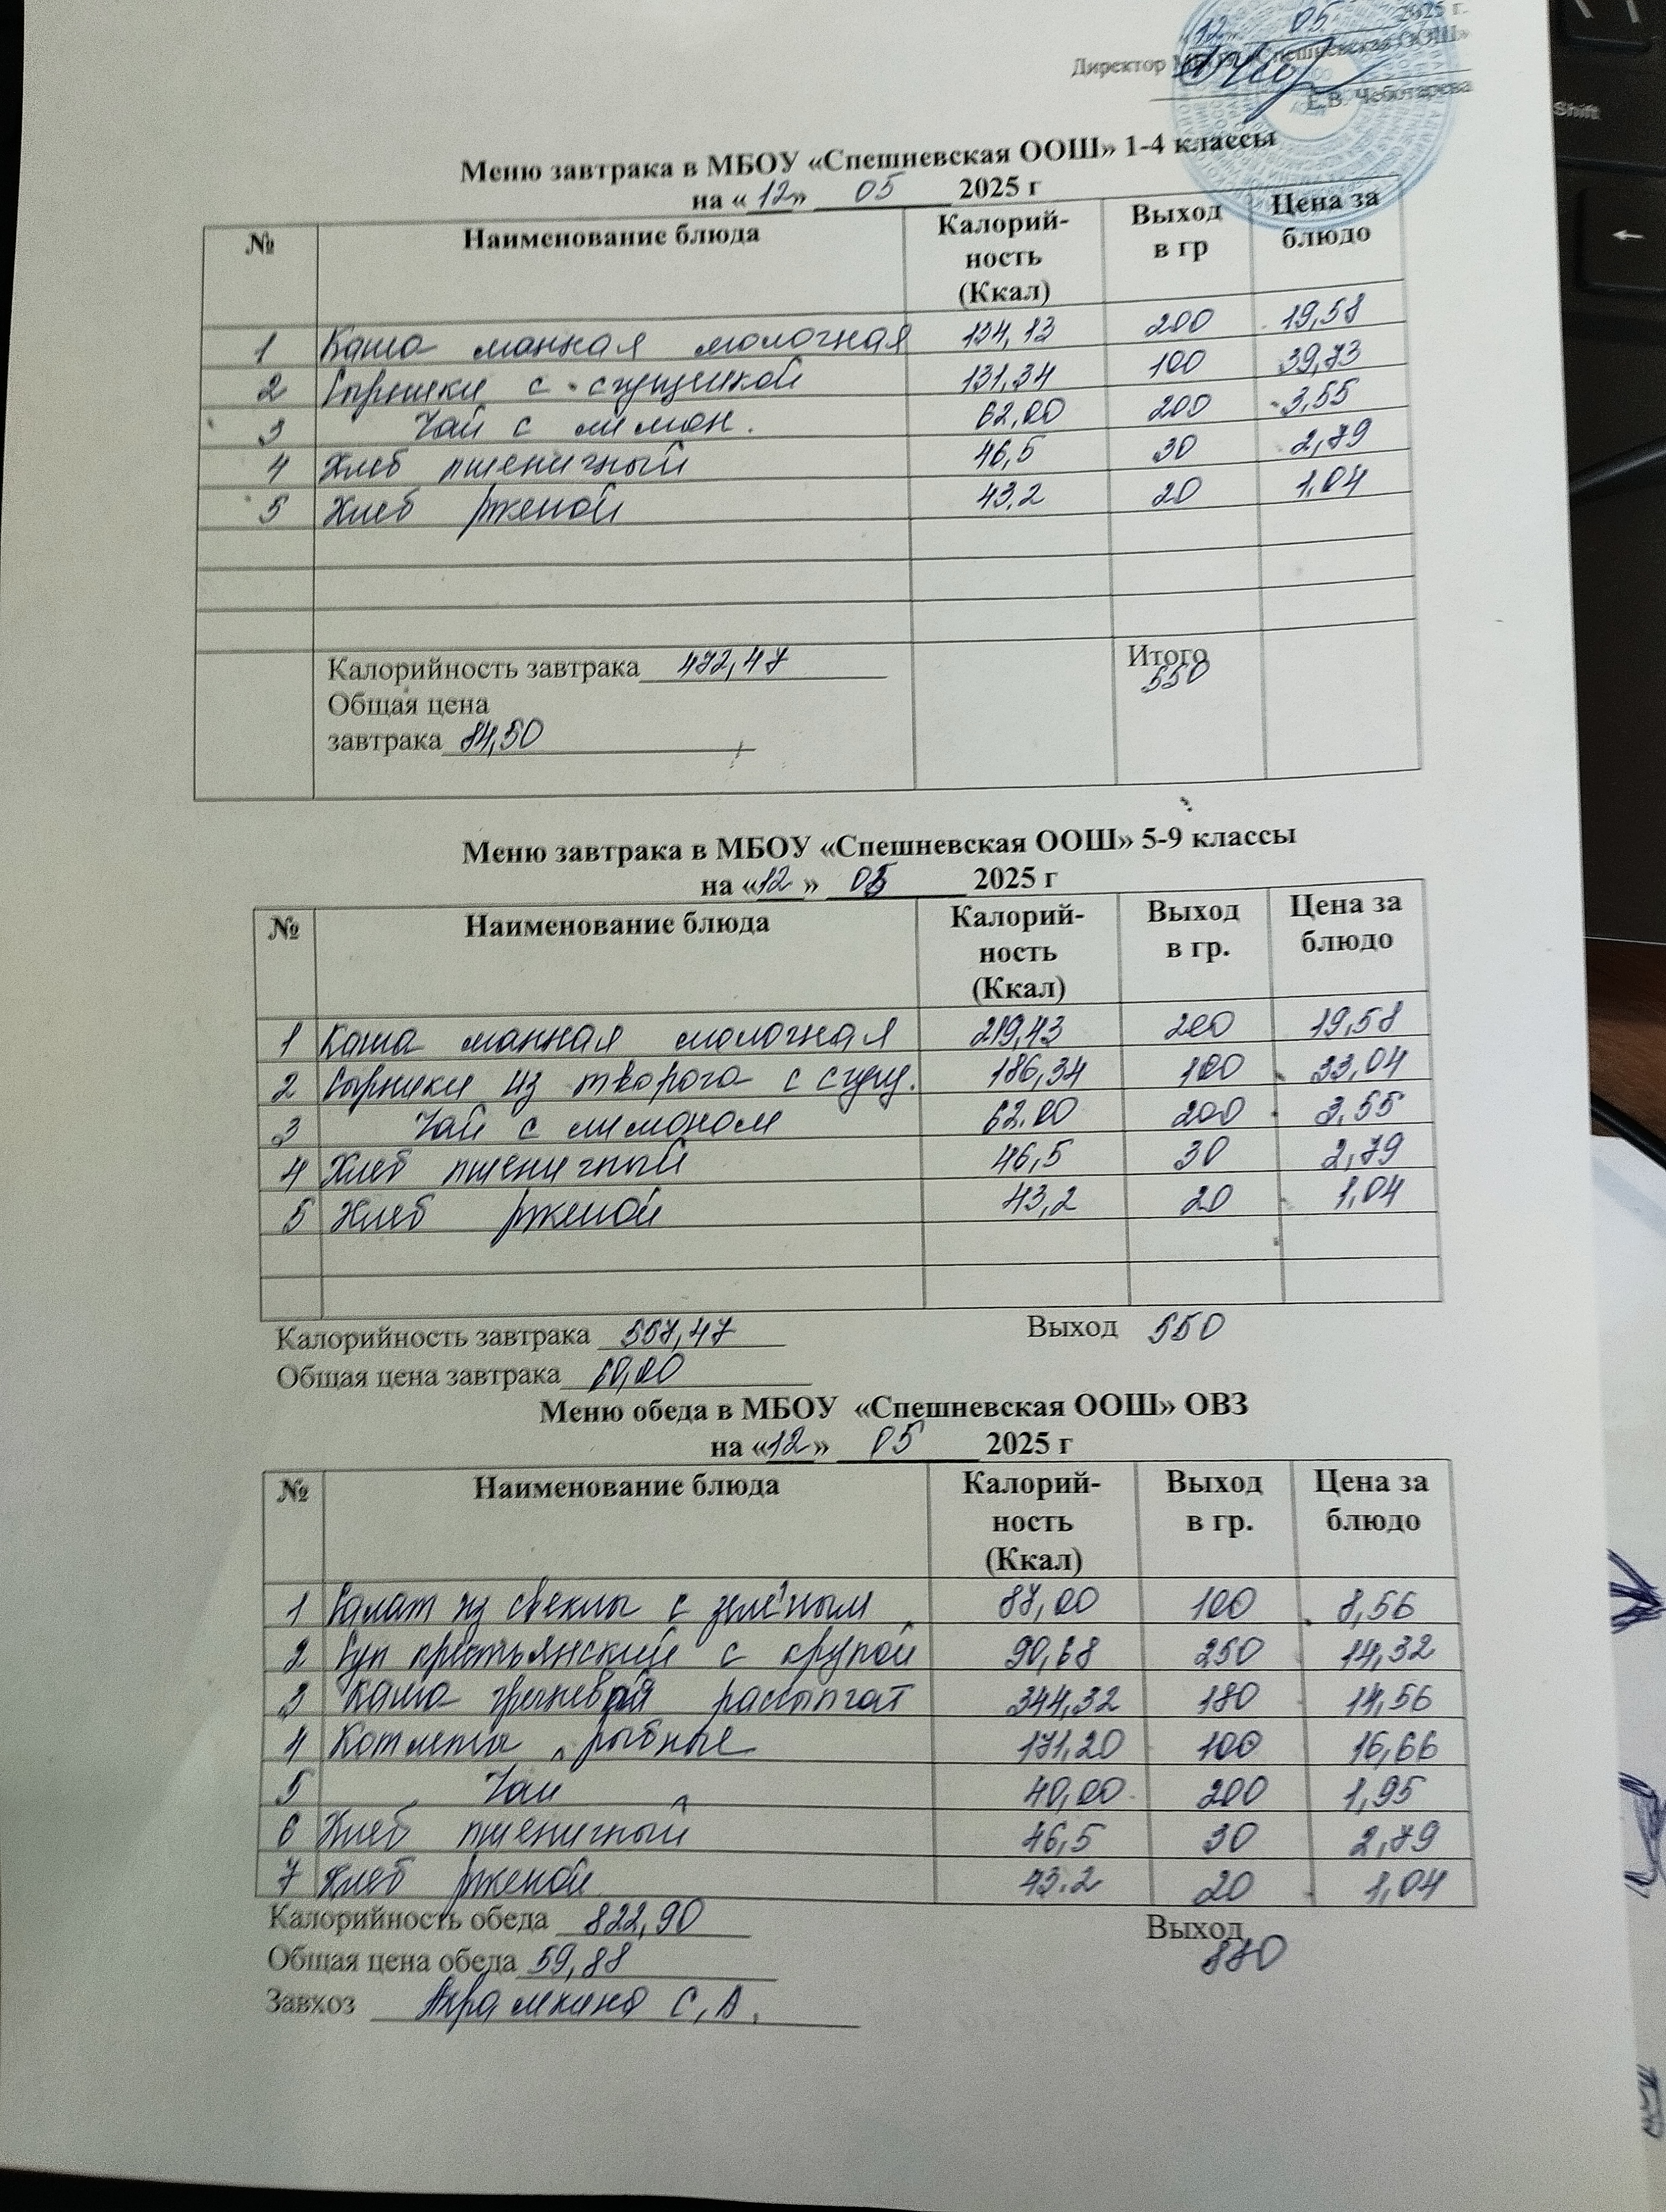 «12» 05. 2025 г.
Директор МБОУ «Спешневская ООШ»
Е.В. Чеботарева
Меню завтрака в МБОУ «Спешневская ООШ» 1-4 классы
на «12» 05 2025 г
№ Наименование блюда Калорий-ность (Ккал) Выход в гр Цена за блюдо
1 Каша манная молочная 134,13 200 19,58
2 Сырники с сгущенкой 131,34 100 39,73
3 Чай с лимон. 62,00 200 3,55
4 Хлеб пшеничный 46,5 30 2,79
5 Хлеб ржаной 43,2 20 1,04
Калорийность завтрака 472,47 Итого
550
Общая цена
завтрака 84,50
Меню завтрака в МБОУ «Спешневская ООШ» 5-9 классы
на «12» 05 2025 г
№ Наименование блюда Калорий-ность (Ккал) Выход в гр. Цена за блюдо
1 Каша манная молочная 219,43 200 19,58
2 Сырники из творога с сгущ. 186,34 100 33,04
3 Чай с лимоном 62,00 200 3,55
4 Хлеб пшеничный 46,5 30 2,79
5 Хлеб ржаной 43,2 20 1,04
Калорийность завтрака 557,47 Выход 550
Общая цена завтрака 60,00
Меню обеда в МБОУ «Спешневская ООШ» ОВЗ
на «12» 05 2025 г
№ Наименование блюда Калорий-ность (Ккал) Выход в гр. Цена за блюдо
1 Салат из свеклы с зелёным 87,00 100 8,56
2 Суп крестьянский с крупой 90,68 250 14,32
3 Каша гречневая рассыпчат 344,32 180 14,56
4 Котлеты рыбные 171,20 100 16,66
5 Чай 40,00 200 1,95
6 Хлеб пшеничный 46,5 30 2,79
7 Хлеб ржаной 43.2 20 1,04
Калорийность обеда 822,90 Выход
880
Общая цена обеда 59,88
Завхоз С,А.
Shift